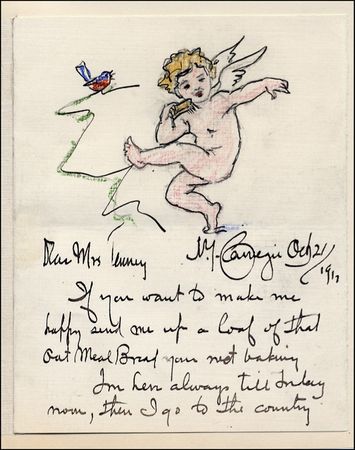 Dear Mrs Tenney N.Y. Carnegie Oct 21/
If you want to make me
happy send me up a loaf of that
Oat Meal Bread your next baking
Im here always till Friday
now, then I go to the country